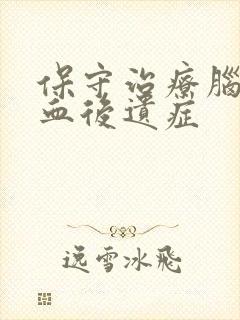 保守治療腦
血後遺症
远雪冰飛